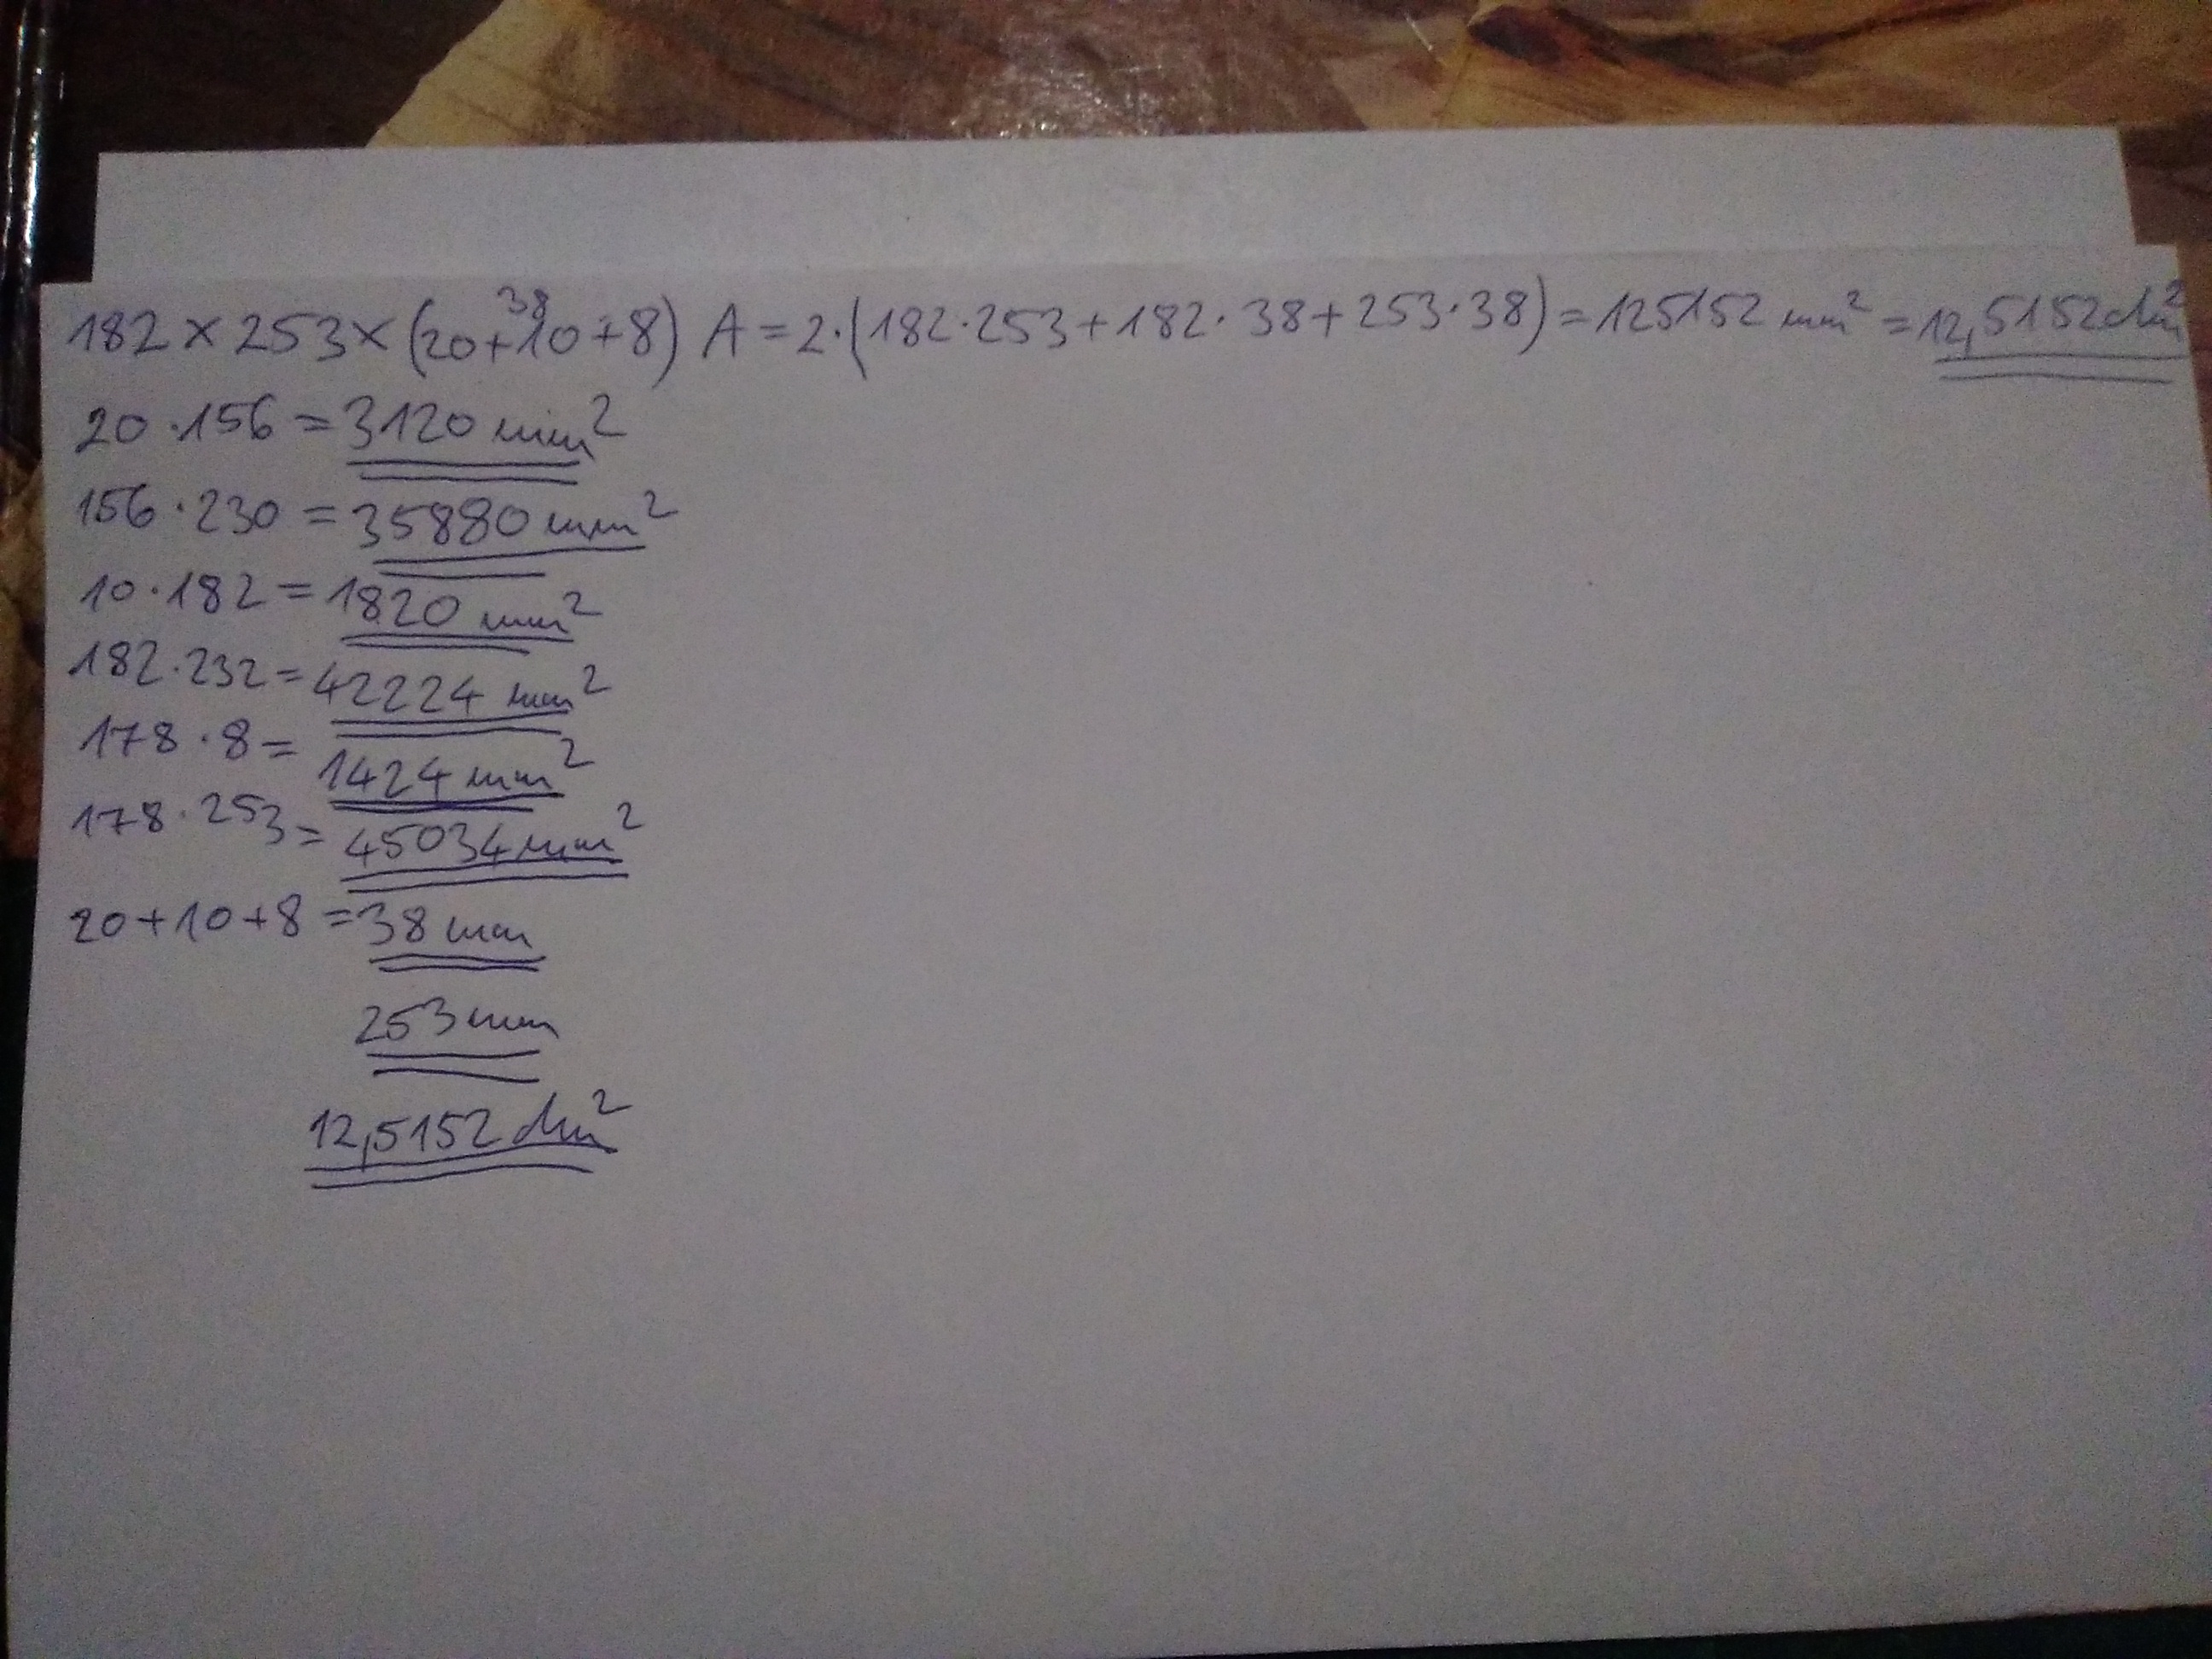 182 × 253 × (20+10+8) 38 A = 2·(182·253+182·38+253·38) = 125152 mm² = 12,5152 dm²
20·156 = 3120 mm²
156·230 = 35880 mm²
10·182 = 1820 mm²
182·232 = 42224 mm²
178·8 = 1424 mm²
178·253 = 45034 mm²
20+10+8 = 38 mm
253 mm
12,5152 dm²